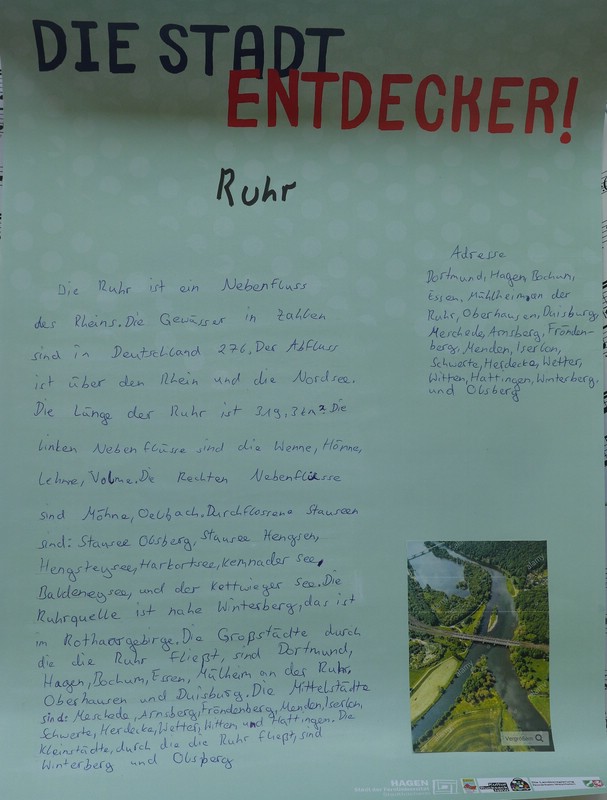 DIE STADT
ENTDECKER!
Ruhr
Die Ruhr ist ein Nebenfluss
des Rheins. Die Gewässer in Zahlen
sind in Deutschland 276. Der Abfluss
ist über den Rhein und die Nordsee.
Die Länge der Ruhr ist 319,3 km². Die
linken Nebenflüsse sind die Wenne, Hönne,
Lehne, Volme. Die Rechten Nebenflüsse
sind Möhne, Oelbach. Durchflossene Stauseen
sind: Stausee Olsberg, Stausee Hengsen,
Hengsteysee, Harkortsee, Kemnader see,
Baldeneysee, und der Kettwieger see. Die
Ruhrquelle ist nahe Winterberg, das ist
im Rothaargebirge. Die Großstädte durch
die die Ruhr fließt, sind Dortmund,
Hagen, Bochum, Essen, Mülheim an der Ruhr,
Oberhausen und Duisburg. Die Mittelstädte
sind: Meschede, Arnsberg, Fröndenberg, Menden, Iserlon,
Schwerte, Herdecke, Wetter, Witten und Hattingen. Die
Kleinstädte, durch die die Ruhr fließt, sind
Winterberg und Olsberg
Adresse
Dortmund, Hagen, Bochum,
Essen, Mühlheim, an der
Ruhr, Oberhausen, Duisburg,
Meschede, Arnsberg, Frönden-
berg, Menden, Iserlon,
Schwerte, Herdecke, Wetter,
Witten, Hattingen, Winterberg,
und Olsberg
alamy
alamy
alamy
Vergrößern
HAGEN